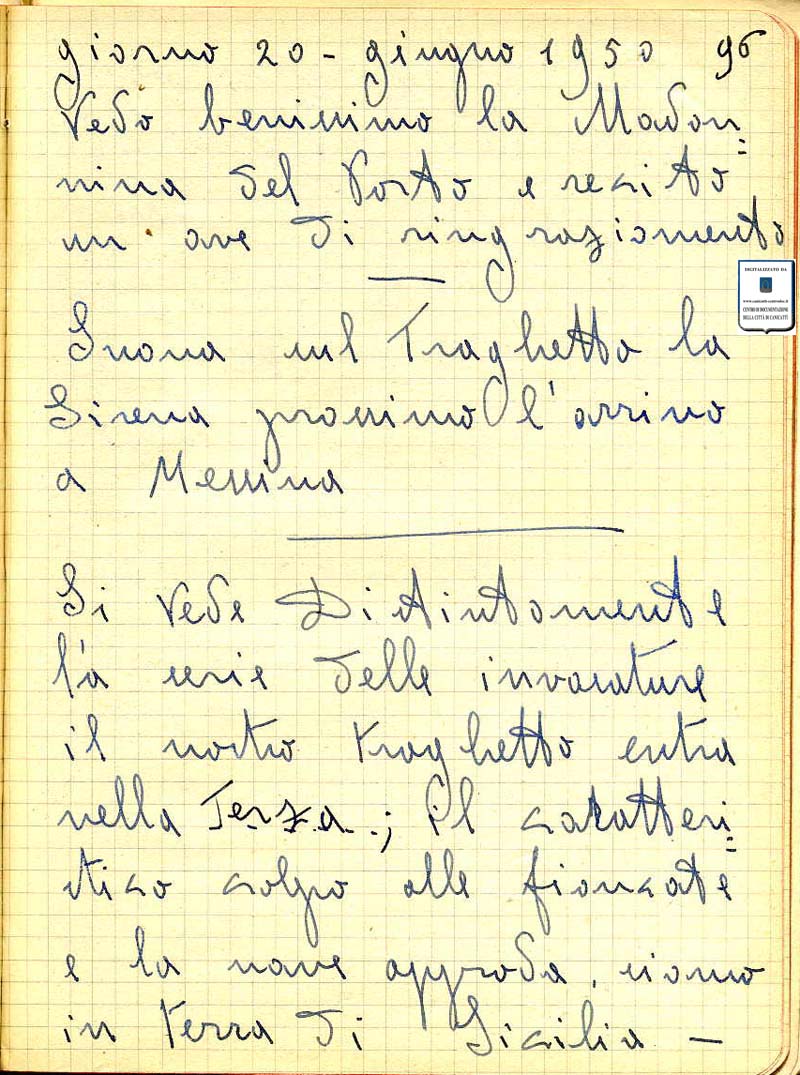 giorno 20 - giugno 1950 96
Vedo benissimo la Madon=
nina del Porto e recito
un ave di ringraziamento
DIGITALIZZATO DA
www.canicatti-centrodoc.it
CENTRO DI DOCUMENTAZIONE
DELLA CITTÀ DI CANICATTÌ
Suona sul Traghetto la
Sirena prossimo l'arrivo
a Messina
Si vede Distintamente
la serie delle invasature
il nostro traghetto entra
nella Terza.; il caratteri=
stico colpo alle fiancate
e la nave approda, siamo
in terra di Sicilia -